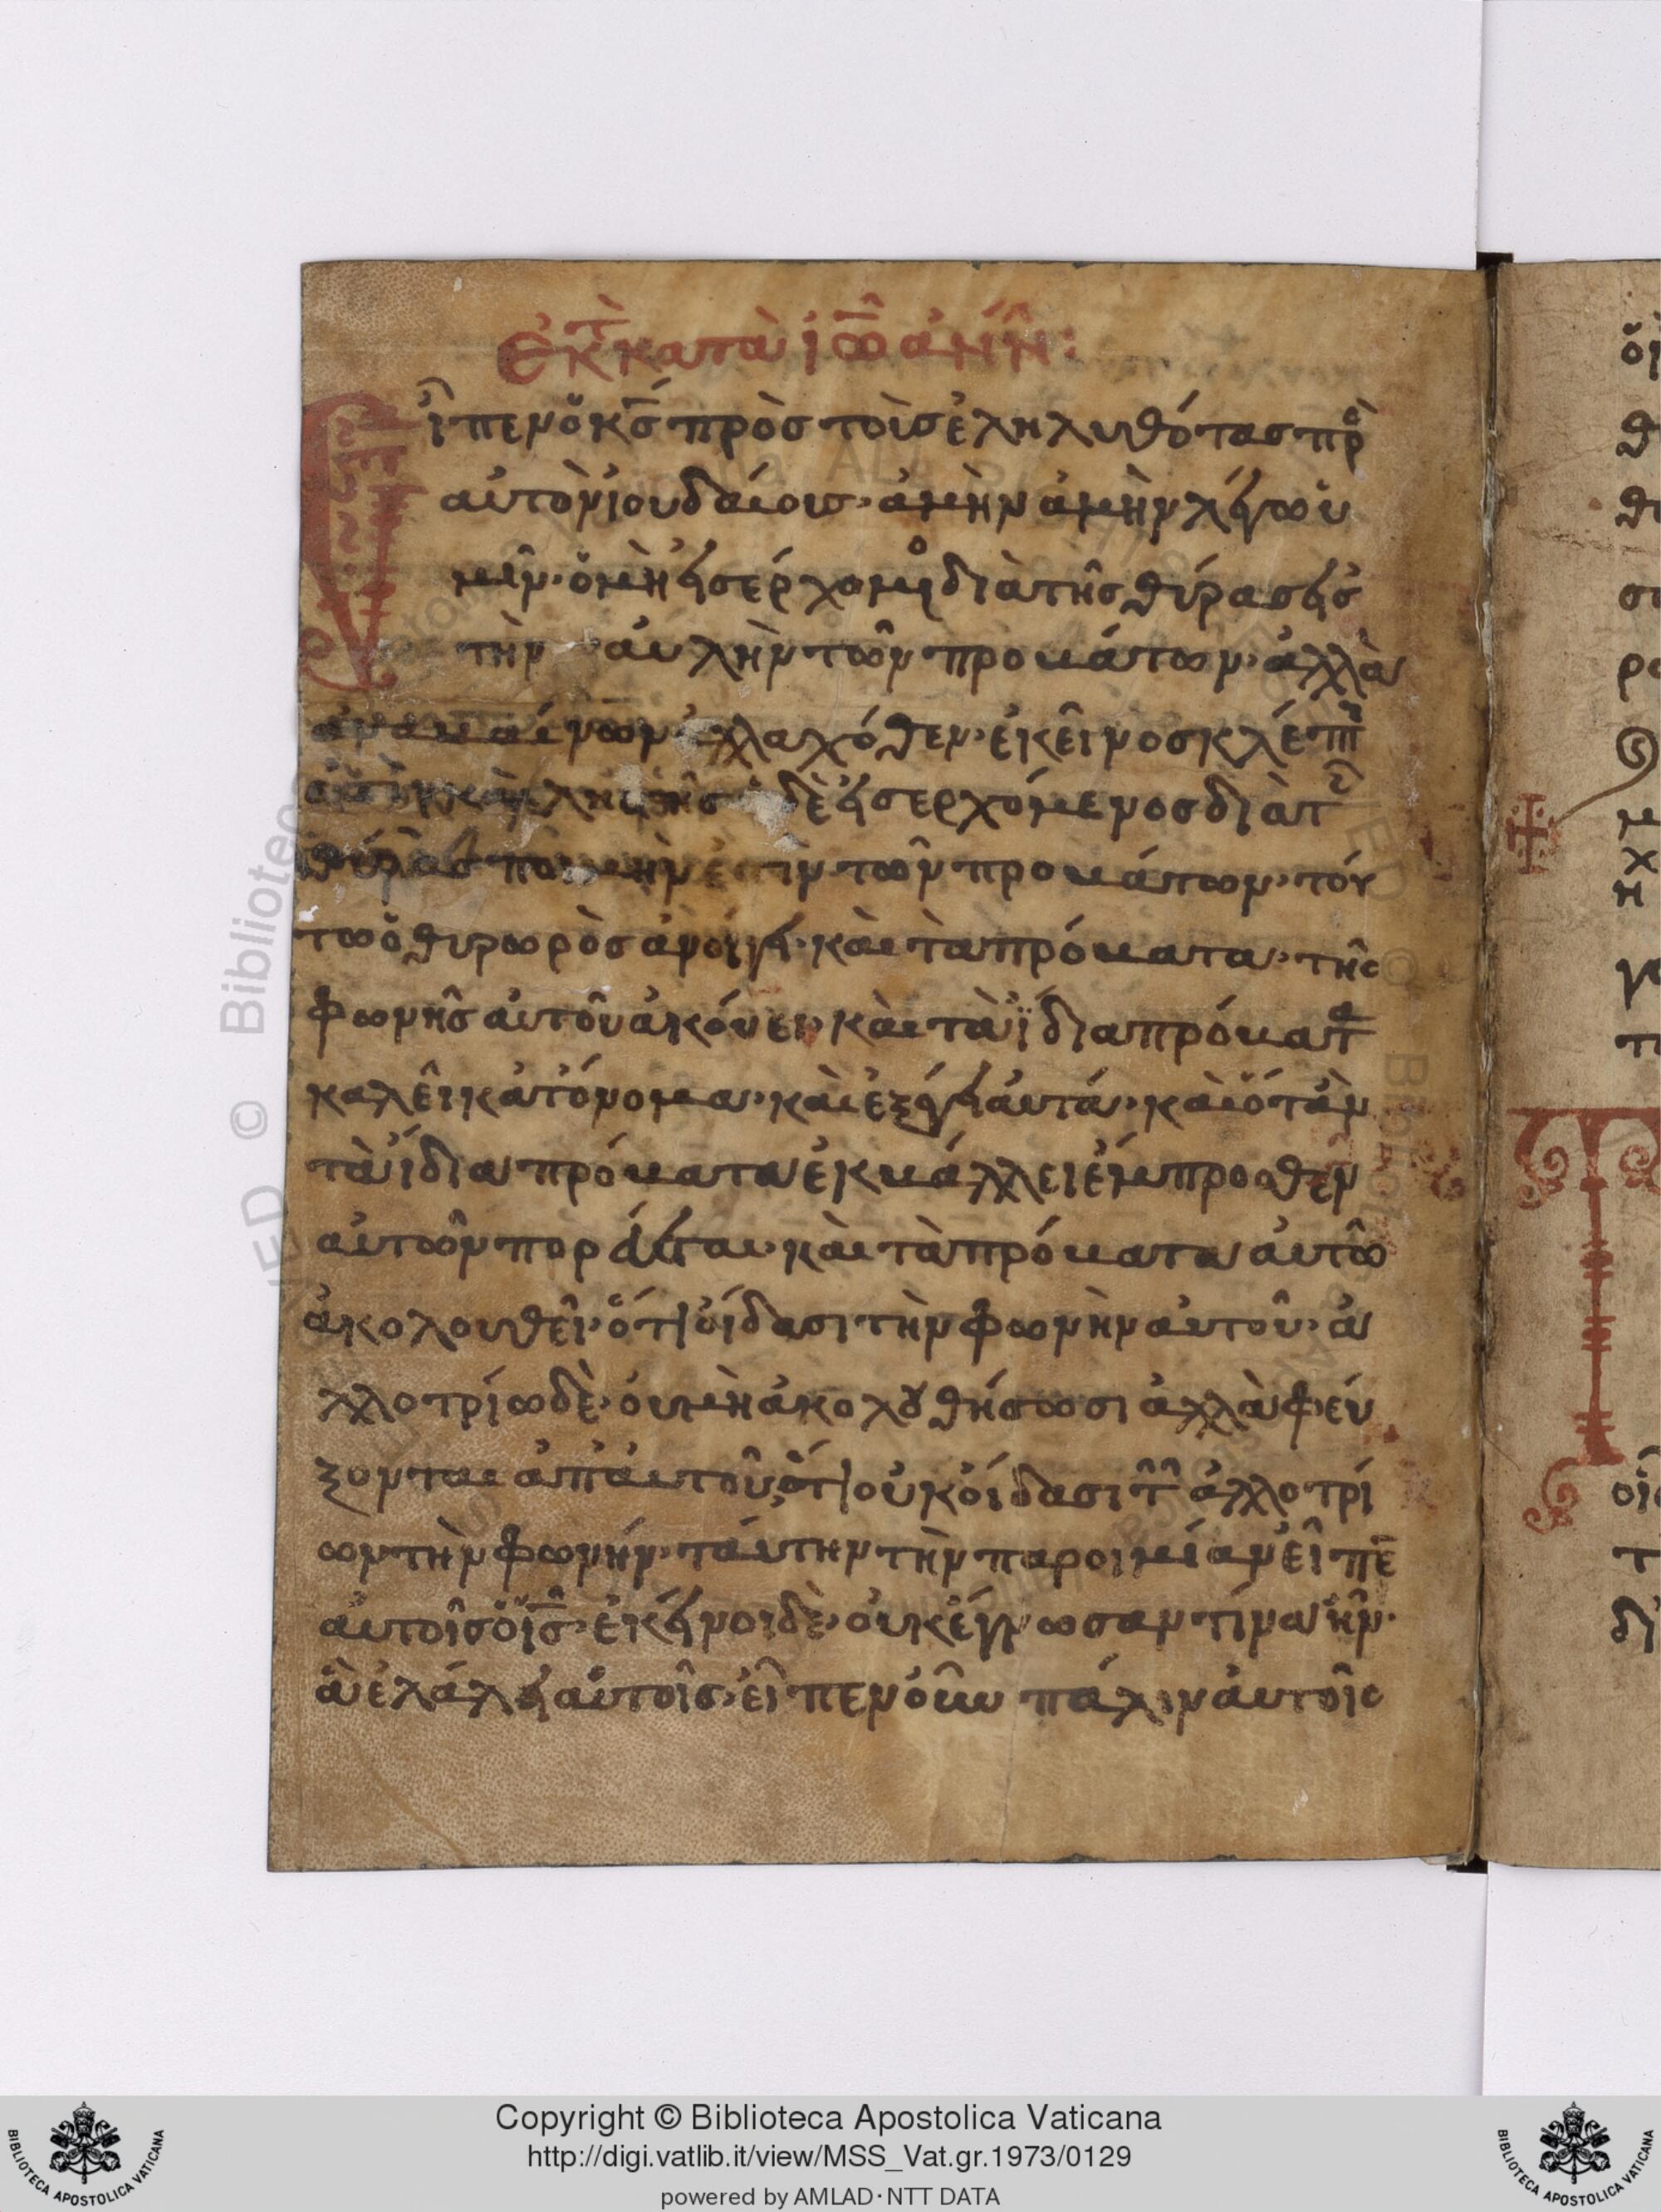 ἐκ τ κατὰ ἰω̅άνν:
Εἶπεν ὁ κς̅ πρὸσ τοὺσ ἐληλυθότασ πρ
αὐτὸν ἰουδαίουσ· ἀμὴν ἀμὴν λέγω ὑ
μῖν· ὁ μὴ εἰσερχόμενοσ διὰ τῆσ θύρασ εἰσ
τὴν αὐλὴν τῶν προβάτων· ἀλλὰ
ἀναβαίνων ἀλλαχόθεν· ἐκεῖνοσ κλέπτ
ἐστὶν καὶ ληστῆσ ὁ δὲ εἰσερχόμενοσ διὰ τ
θύρασ ποιμὴν ἐστὶν τῶν προβάτων· τού
τω ὁ θυρωρὸσ ἀνοίγει· καὶ τὰ πρόβατα· τῆσ
φωνῆσ αὐτοῦ ἀκούει· καὶ τὰ ἴδια πρόβατ
καλεῖ κατ' όνομα· καὶ ἐξάγει αὐτά· καὶ ὅτὰν
τὰ ἴδια πρόβατα ἐκβάλλει ἔμπροσθεν
αὐτῶν πορεύεται· καὶ τὰ πρόβατα αὐτῶ
ἀκολουθεῖ· ὅτι οἴδασι τὴν φωνὴν αὐτοῦ· ἀ
λλοτρίω δὲ· οὐ μὴ ἀκολουθήσωσι ἀλλὰ φεύ
ξονται ἀπ' αὐτοῦ, ὅτι οὐκ οἴδασι τῶν ἀλλοτρί
ων τὴν φωνήν· ταύτην τὴν παροιμίαν εἶπε
αὐτοῖσ ὁ ἰς̅· ἐκείνοι δὲ· οὐκ ἔγνωσαν τίνα ἦν·
ἃ ἐλάλει αὐτοῖσ· εἶπεν οὖν πάλιν αὐτοῖσ
Copyright © Biblioteca Apostolica Vaticana
http://digi.vatlib.it/view/MSS_Vat.gr.1973/0129
powered by AMLAD·NTT DATA
BIBLIOTECA APOSTOLICA VATICANA
BIBLIOTECA APOSTOLICA VATICANA